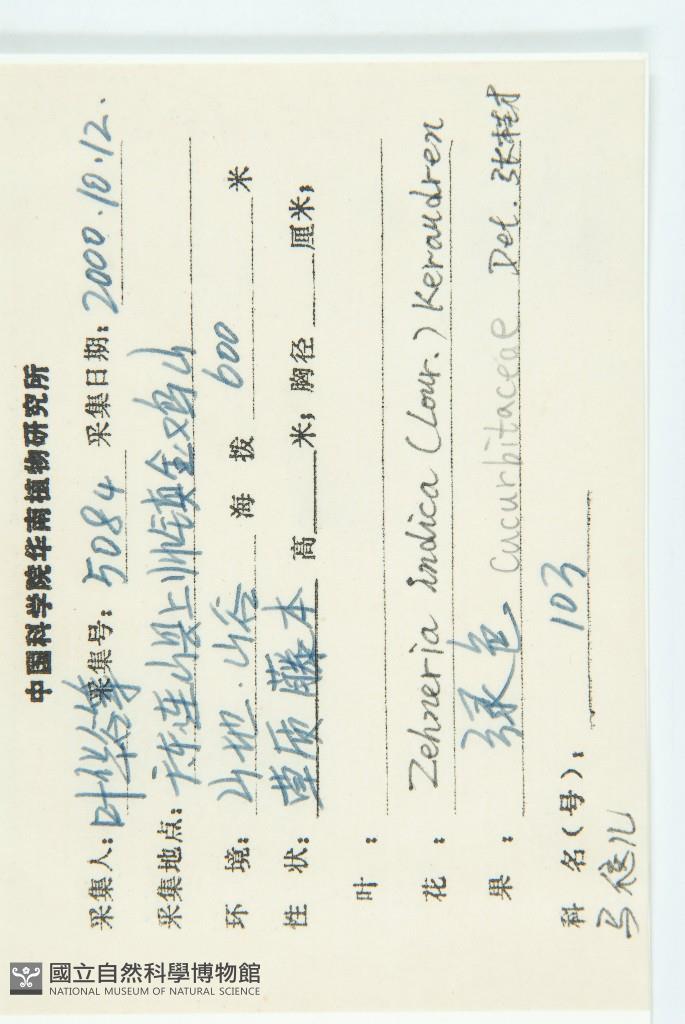 中国科学院华南植物研究所
采集人：叶华谷等 采集号：5084 采集日期：2000.10.12.
采集地点：广东连山县上帅镇金鸡山
环 境：山地.山谷 海 拨 600 米
性 状：草质藤本 高 米；胸径 厘米；
叶：
花：Zehneria indica (Lour.) Keraudren
果：绿色 Cucurbitaceae Det.
科 名(号)： 103
马㼎儿
國立自然科學博物館
NATIONAL MUSEUM OF NATURAL SCIENCE